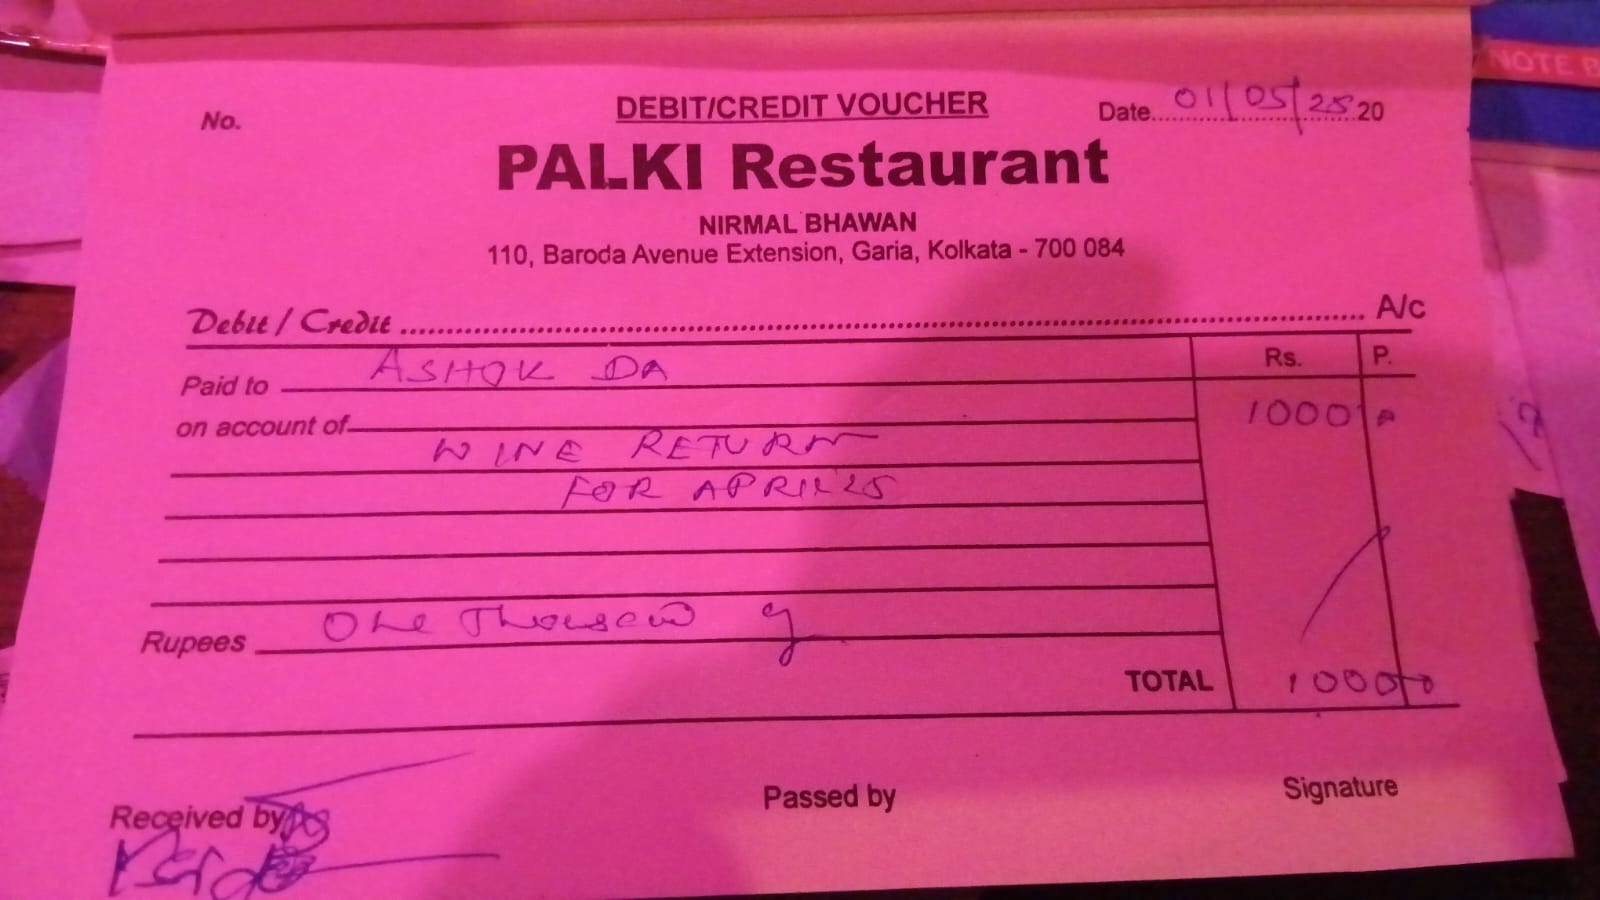 NOTE B
No.
DEBIT/CREDIT VOUCHER
Date 01/05/25 20
PALKI Restaurant
NIRMAL BHAWAN
110, Baroda Avenue Extension, Garia, Kolkata - 700 084
Debit / Credit ........ A/c
Rs. P.
Paid to ASHOK DA
on account of 1000
WINE RETURN
FOR APRIL'25
Rupees One Thousand
TOTAL 1000
Received by
Passed by
Signature